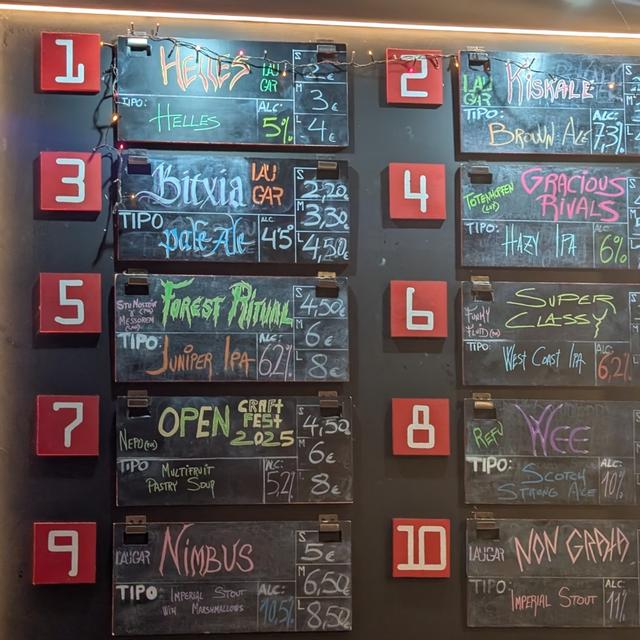 1
HELLES
LAU
GAR
S 2€
M 3€
L 4€
TIPO:
HELLES
ALC:
5%
2
LAU
GAR
KISKALE
TIPO:
BROWN ALE
ALC:
7,3%
3
Bitxia
LAU
GAR
S 2,20
M 3,30
L 4,50€
TIPO
pale Ale
ALC.
4'5
4
TOTENHOPFEN
(LUX)
GRACIOUS
RIVALS
TIPO:
HAZY IPA
ALC:
6%
5
STU MOSTÓW
MESSOREM
FOREST RITUAL
S 4,50€
M 6€
L 8€
TIPO:
JUNIPER IPA
ALC:
6,2%
6
FUNKY
FLUID (PO)
SUPER
CLASSY
TIPO:
WEST COAST IPA
ALC:
6,2%
7
NEPO (PO)
OPEN CRAFT
FEST
2025
S 4,50
M 6€
L 8€
TIPO
MULTIFRUIT
PASTRY SOUP
ALC:
5,2%
8
REFU
WEE
TIPO:
SCOTCH
STRONG ALE
ALC:
10%
9
LAUGAR
NIMBUS
S 5€
M 6,50€
L 8,50€
TIPO
IMPERIAL STOUT
WITH MARSHMALLOWS
ALC:
10,5%
10
LAUGAR
NON GRATA
TIPO:
IMPERIAL STOUT
ALC:
11%